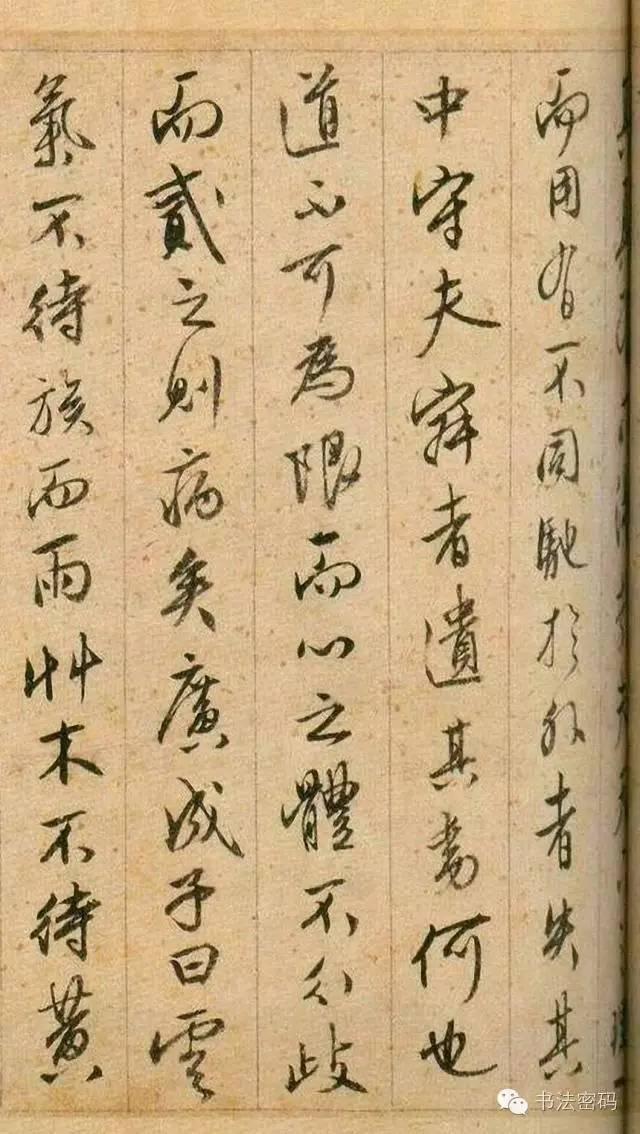 而用有不同馳於外者失其
中守夫寂者遺其書何也
道不可為限而心之體不分歧
而貳之則病矣廣成子曰雲
氣不待族而雨艸木不待黃
书法密码